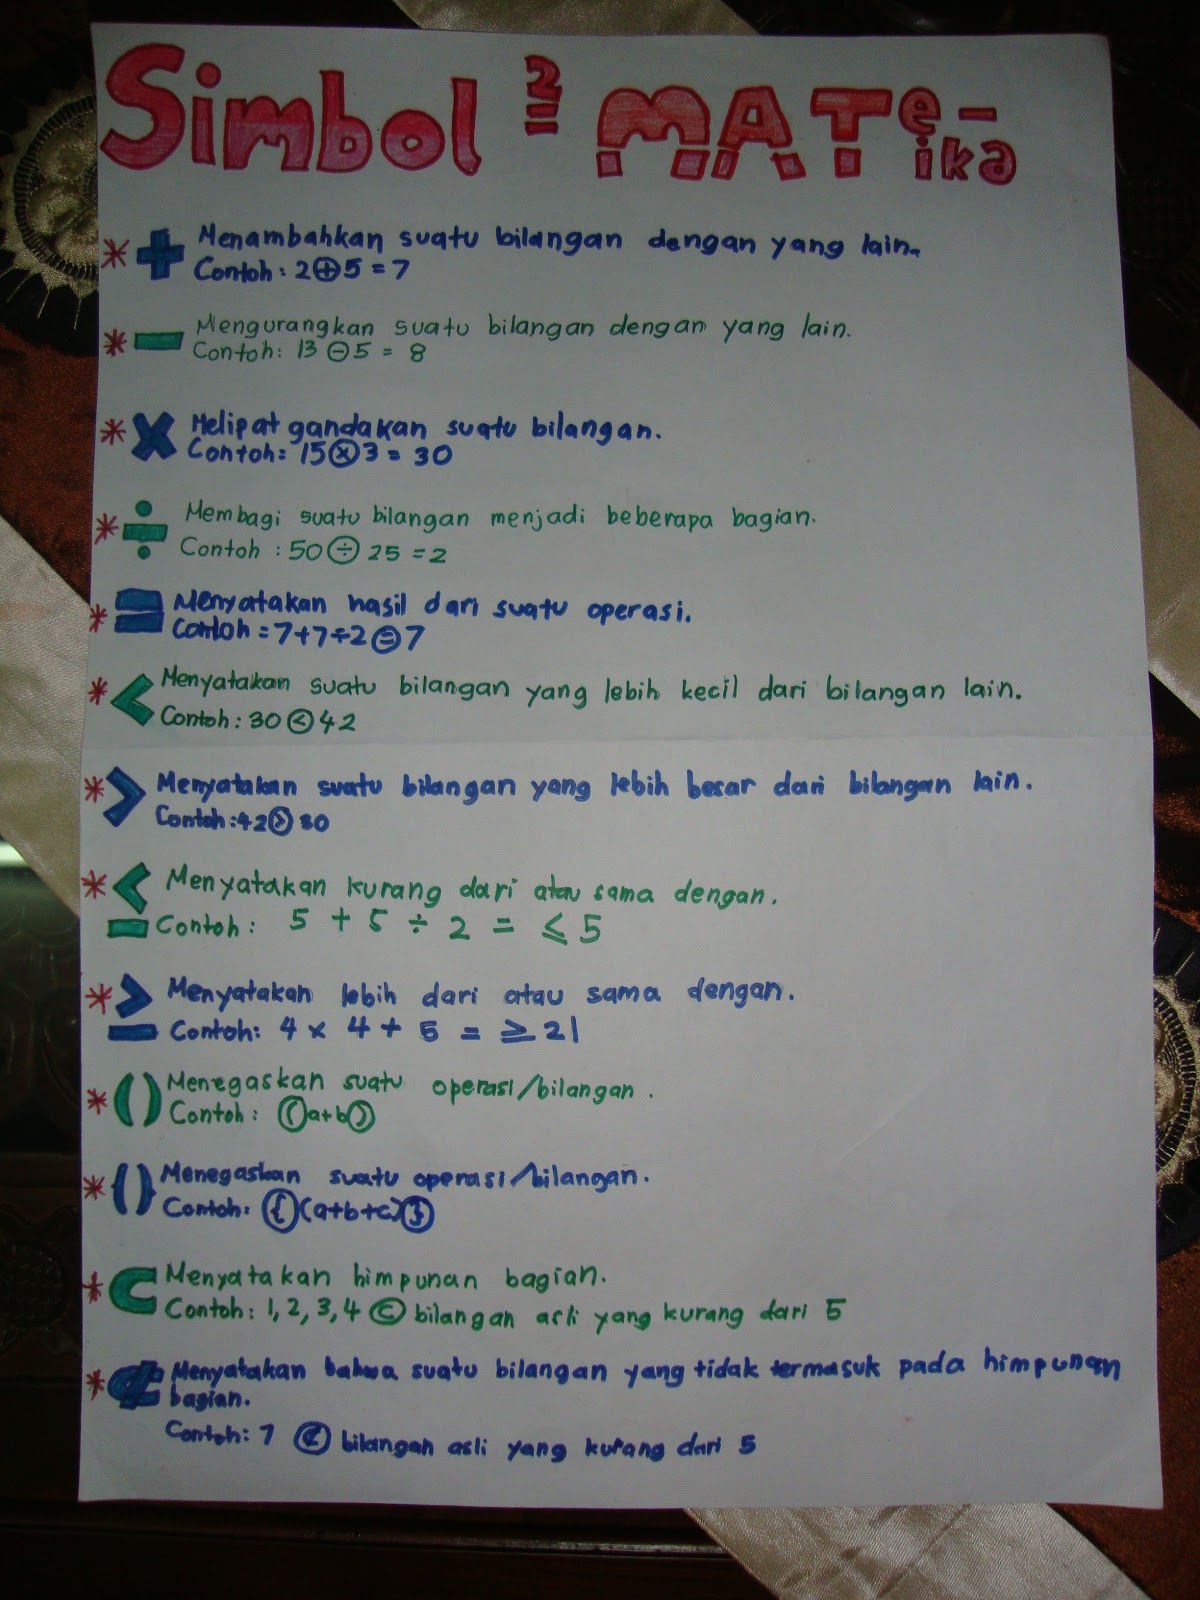 Simbol 2= MATe-
ika
* + Menambahkan suatu bilangan dengan yang lain.
Contoh: 2⊕5 = 7
* - Mengurangkan suatu bilangan dengan yang lain.
Contoh: 13 ⊖5 = 8
* × Melipat gandakan suatu bilangan.
Contoh: 15⊗3 = 30
* ÷ Membagi suatu bilangan menjadi beberapa bagian.
Contoh : 50 ÷ 25 = 2
* = Menyatakan hasil dari suatu operasi.
Contoh = 7+7÷2 = 7
* < Menyatakan suatu bilangan yang lebih kecil dari bilangan lain.
Contoh: 30 < 42
* > Menyatakan suatu bilangan yang lebih besar dari bilangan lain.
Contoh: 42 > 30
* ≤ Menyatakan kurang dari atau sama dengan.
Contoh: 5 + 5 ÷ 2 = ≤ 5
* ≥ Menyatakan lebih dari atau sama dengan.
Contoh: 4 × 4 + 5 = ≥ 21
* ( ) Menegaskan suatu operasi/bilangan.
Contoh: (a+b)
* { } Menegaskan suatu operasi/bilangan.
Contoh: {(a+b+c)}
* ⊂ Menyatakan himpunan bagian.
Contoh: 1, 2, 3, 4 ⊂ bilangan asli yang kurang dari 5
* ⊄ Menyatakan bahwa suatu bilangan yang tidak termasuk pada himpunan
bagian.
Contoh: 7 ⊄ bilangan asli yang kurang dari 5